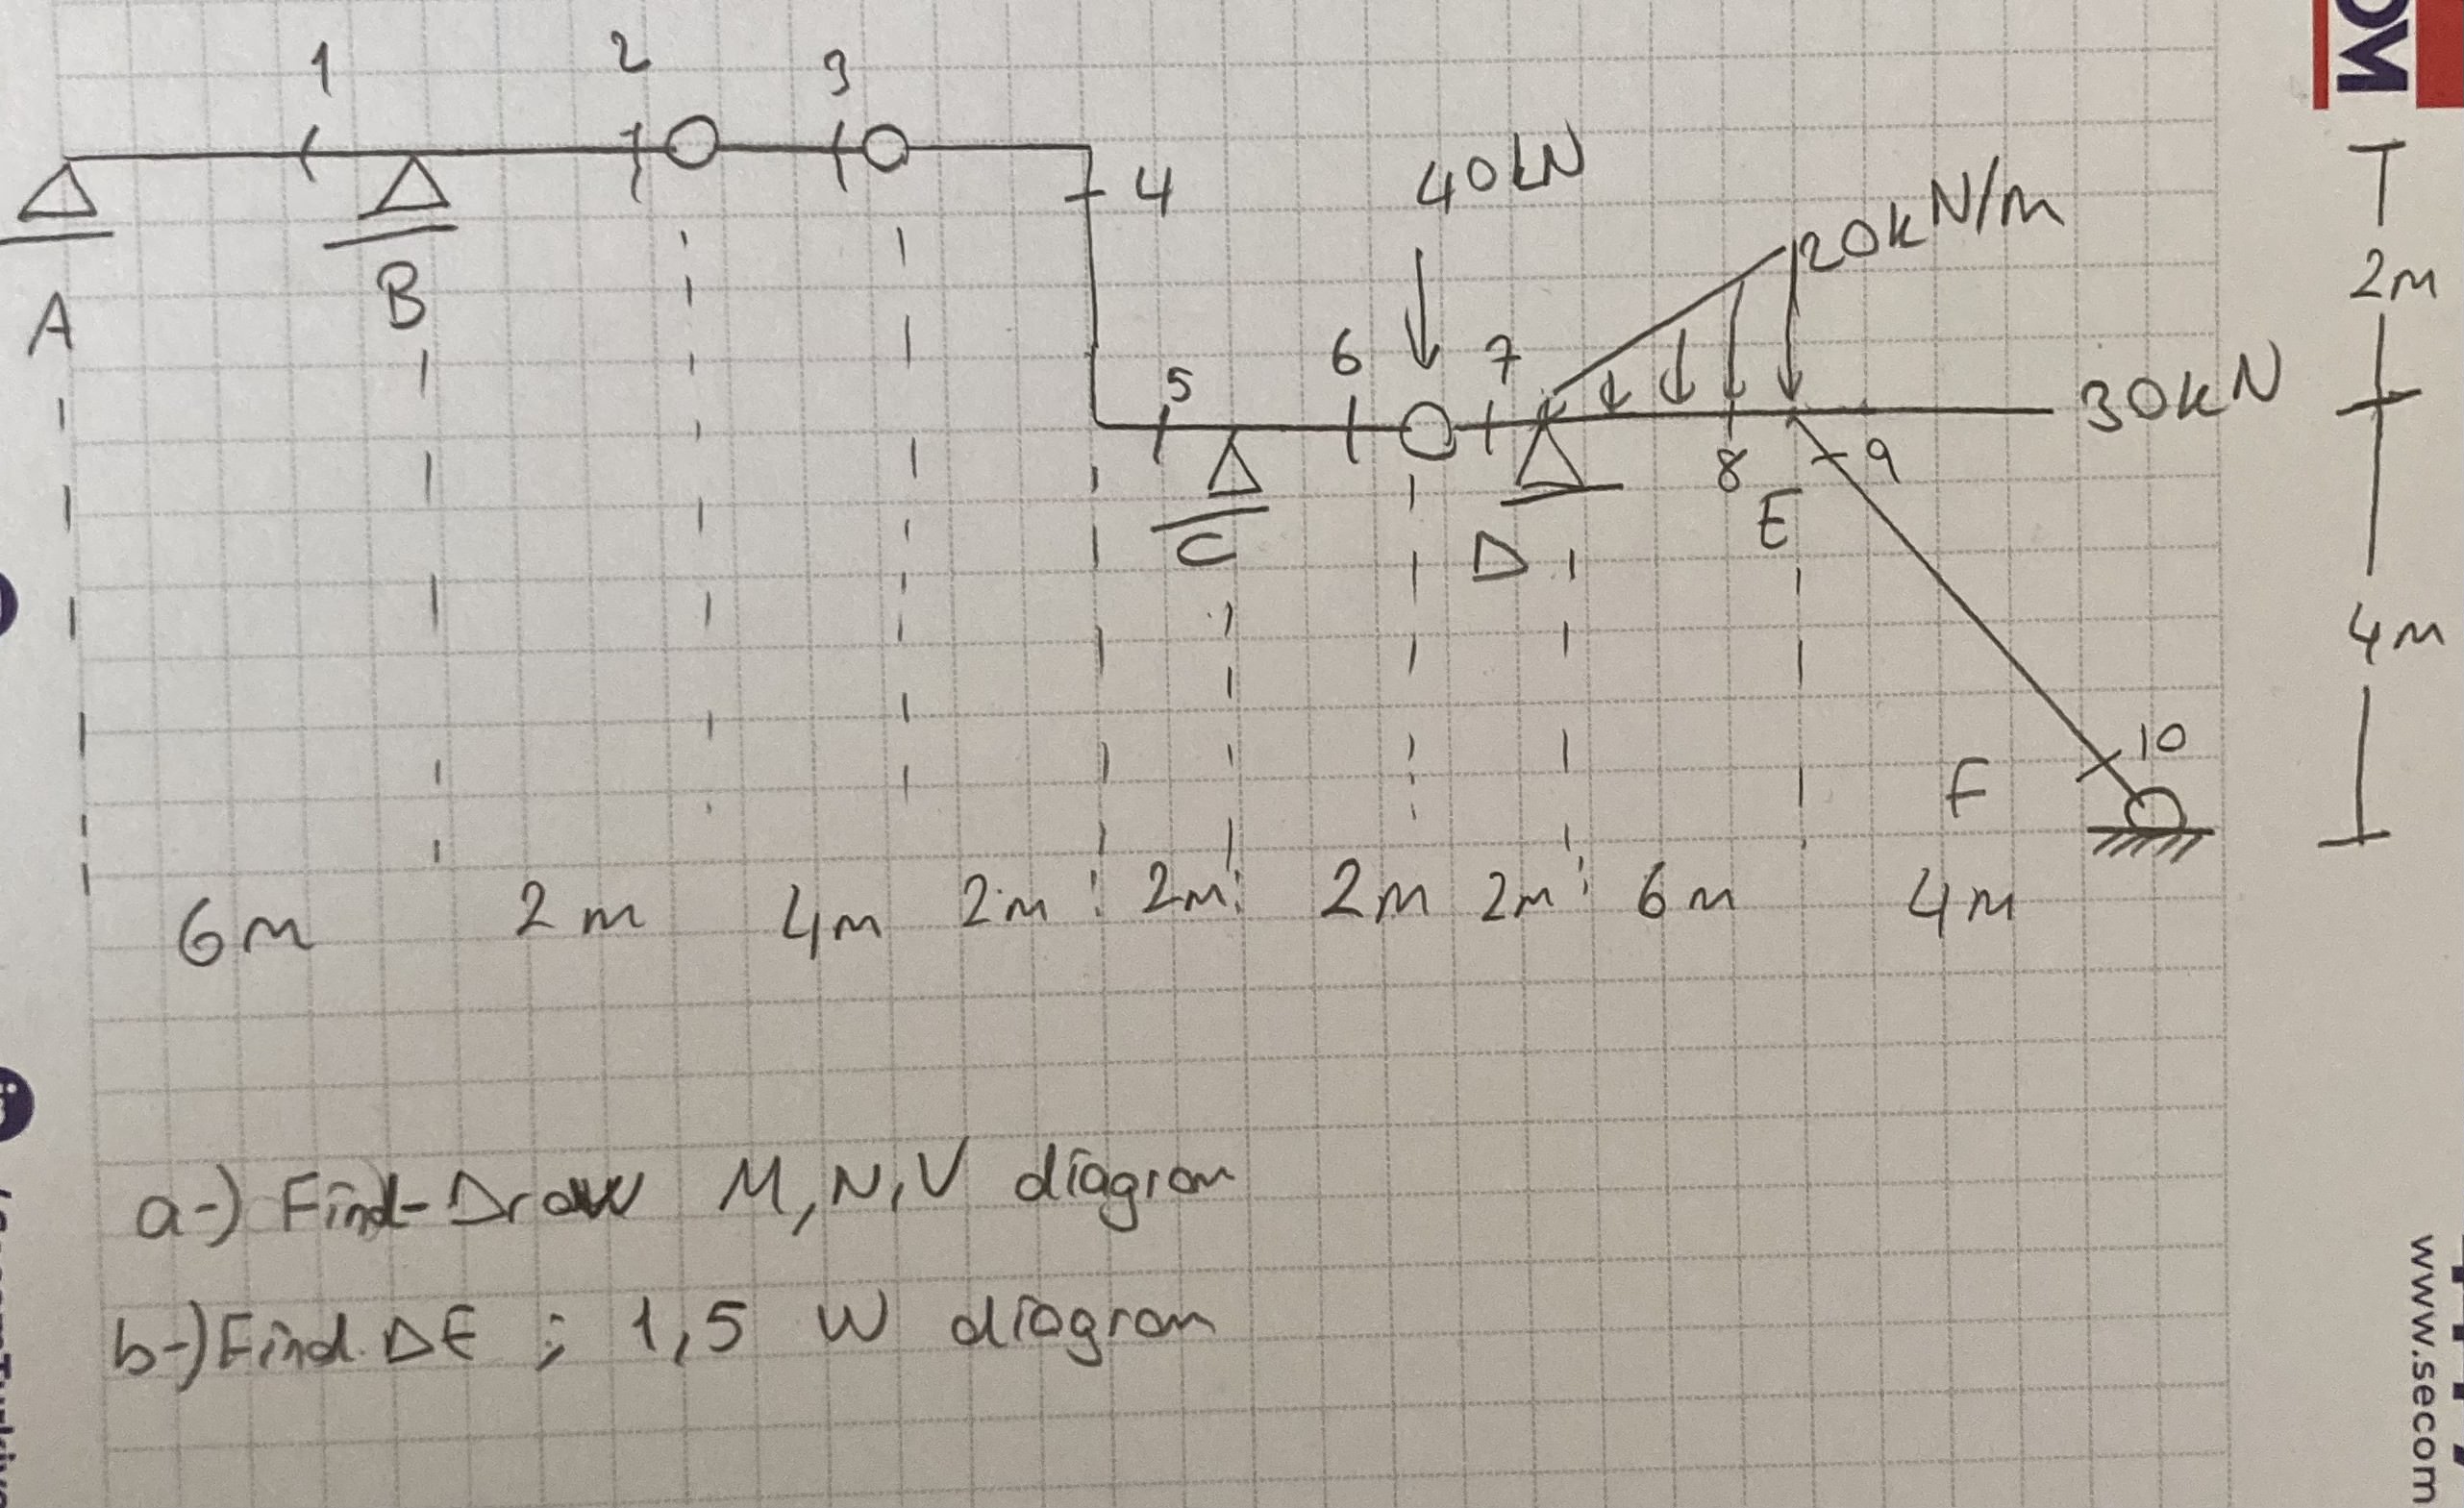 1 2 3
4
40kN
20kN/m
5 6 7
30kN
8 9
A B C D E
F
10
6m 2m 4m 2m 2m 2m 2m 6m 4m
2m
4m
a-) Find-Draw M,N,V diagram
b-) Find ΔE ; 1,5 W diagram
OM
www.secom